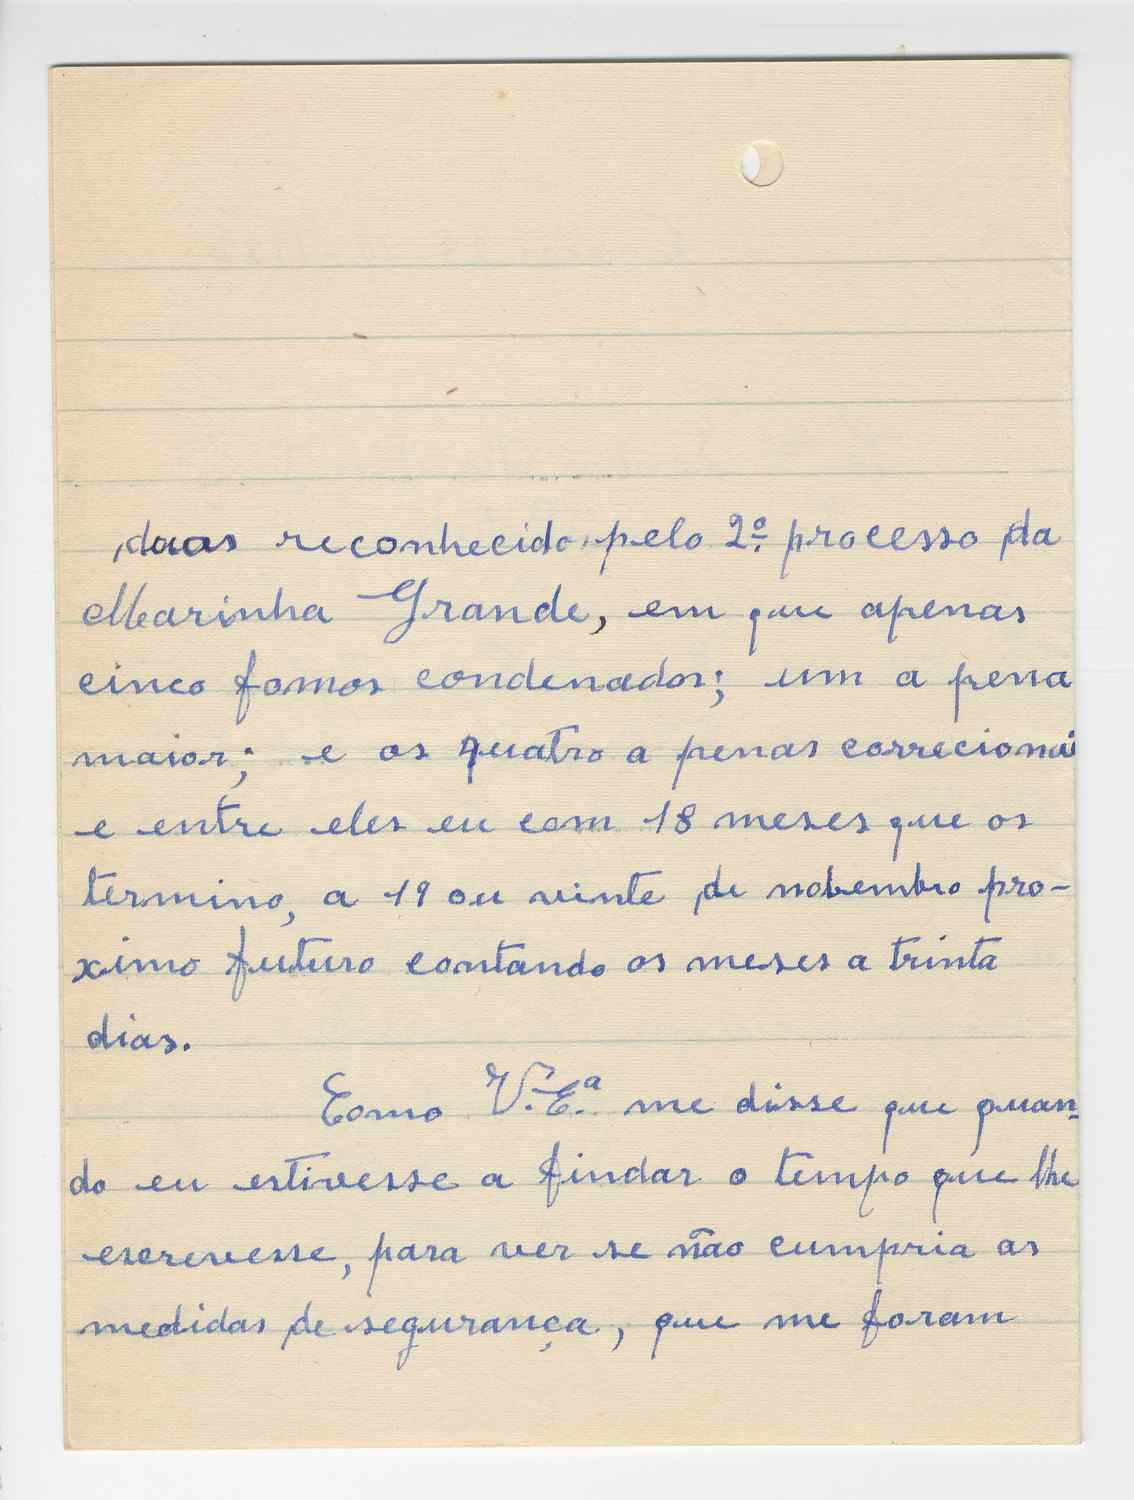 daas reconhecido, pelo 2º processo da
Marinha Grande, em que apenas
cinco fomos condenados; um a pena
maior; e os quatro a penas correcionai
e entre eles eu com 18 meses que os
termino, a 19 ou vinte de nobembro pro-
ximo futuro contando os meses a trinta
dias.
Como V. E.ª me disse que quan-
do eu estivesse a findar o tempo que lhe
escrevesse, para ver se não cumpria as
medidas de segurança, que me foram